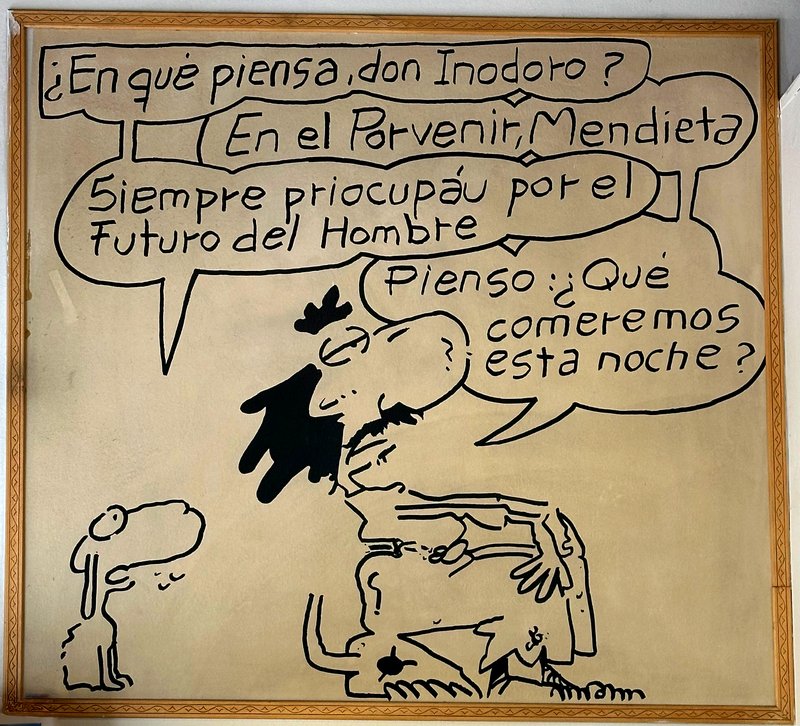 ¿En qué piensa, don Inodoro?
En el Porvenir, Mendieta
Siempre priocupáu por el
Futuro del Hombre
Pienso: ¿Qué
comeremos
esta noche?